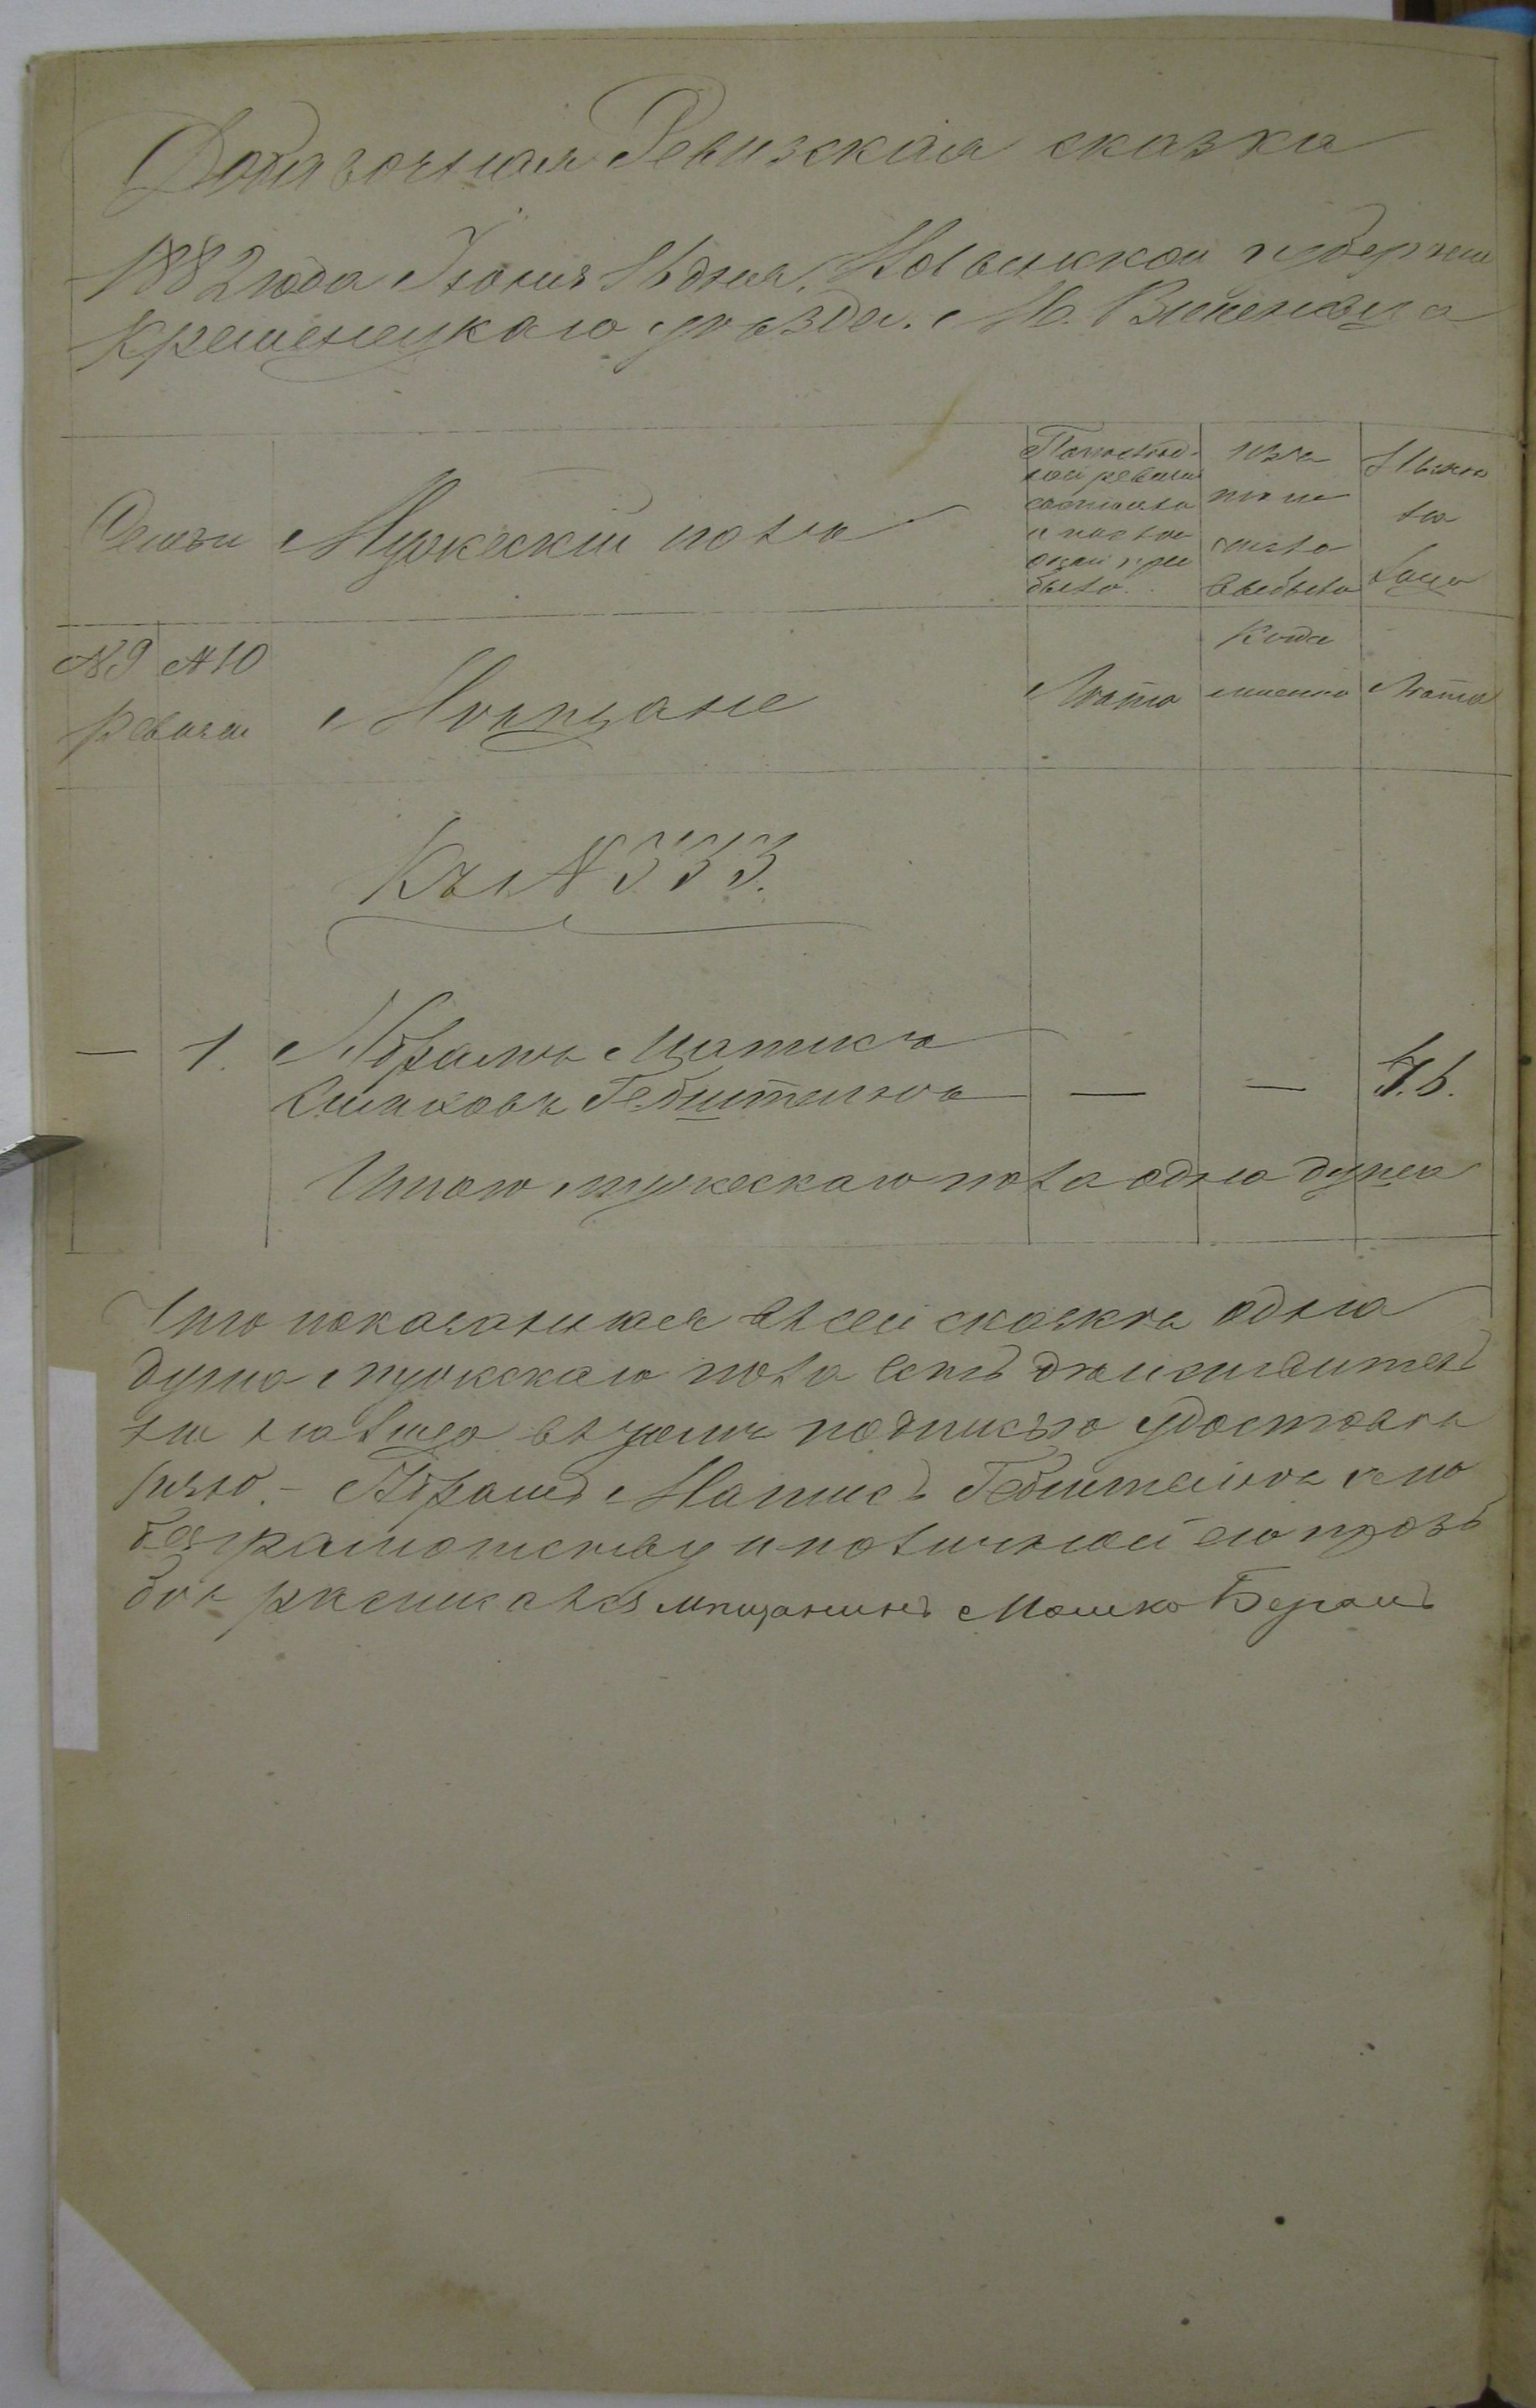 Добавочная Ревизская сказка
1882 года Июня дня, Волынской губернии
Кременецкаго уѣзда. М. Вишневца
Семьи
Мужескій полъ
По послѣд-
ней ревизіи
состояло
и послѣ
оной при
было.
Изъ
то
числа
выбыло
Нынѣ
на
лицо
№ 9
№ 10
Ревизіи
Мѣщане
Лѣта
Когда
именно
Лѣта
Къ № 333.
— 1. Абрамъ Матисъ
Гебштейнъ — —
Итого мужескаго пола одна душа
Что показанная въ сей сказкѣ одна
душа мужескаго пола есть дѣйствитель
но на лицо въ томъ подписью удостовѣ
ряю. - Абрамъ Матисъ Гебштейнъ а по
безграмотству и по личной его прозь
бѣ росписался мѣщанинъ Мошко Беранъ